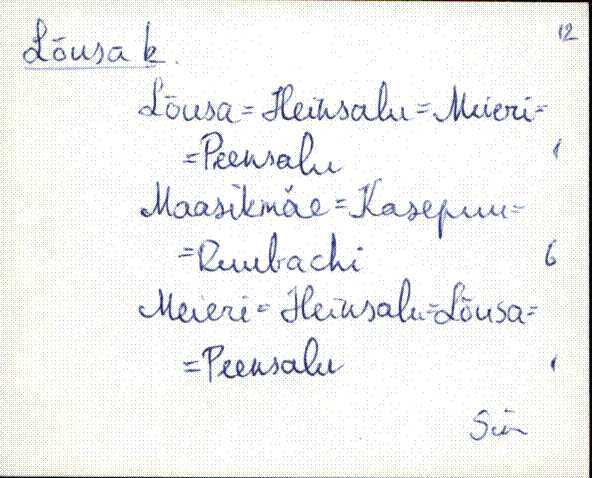 12
Lõusa k.
Lõusa = Heinsalu = Meieri =
= Peensalu 1
Maasikmäe = Kasepuu =
= Ruubachi 6
Meieri = Heinsalu = Lõusa =
= Peensalu 1